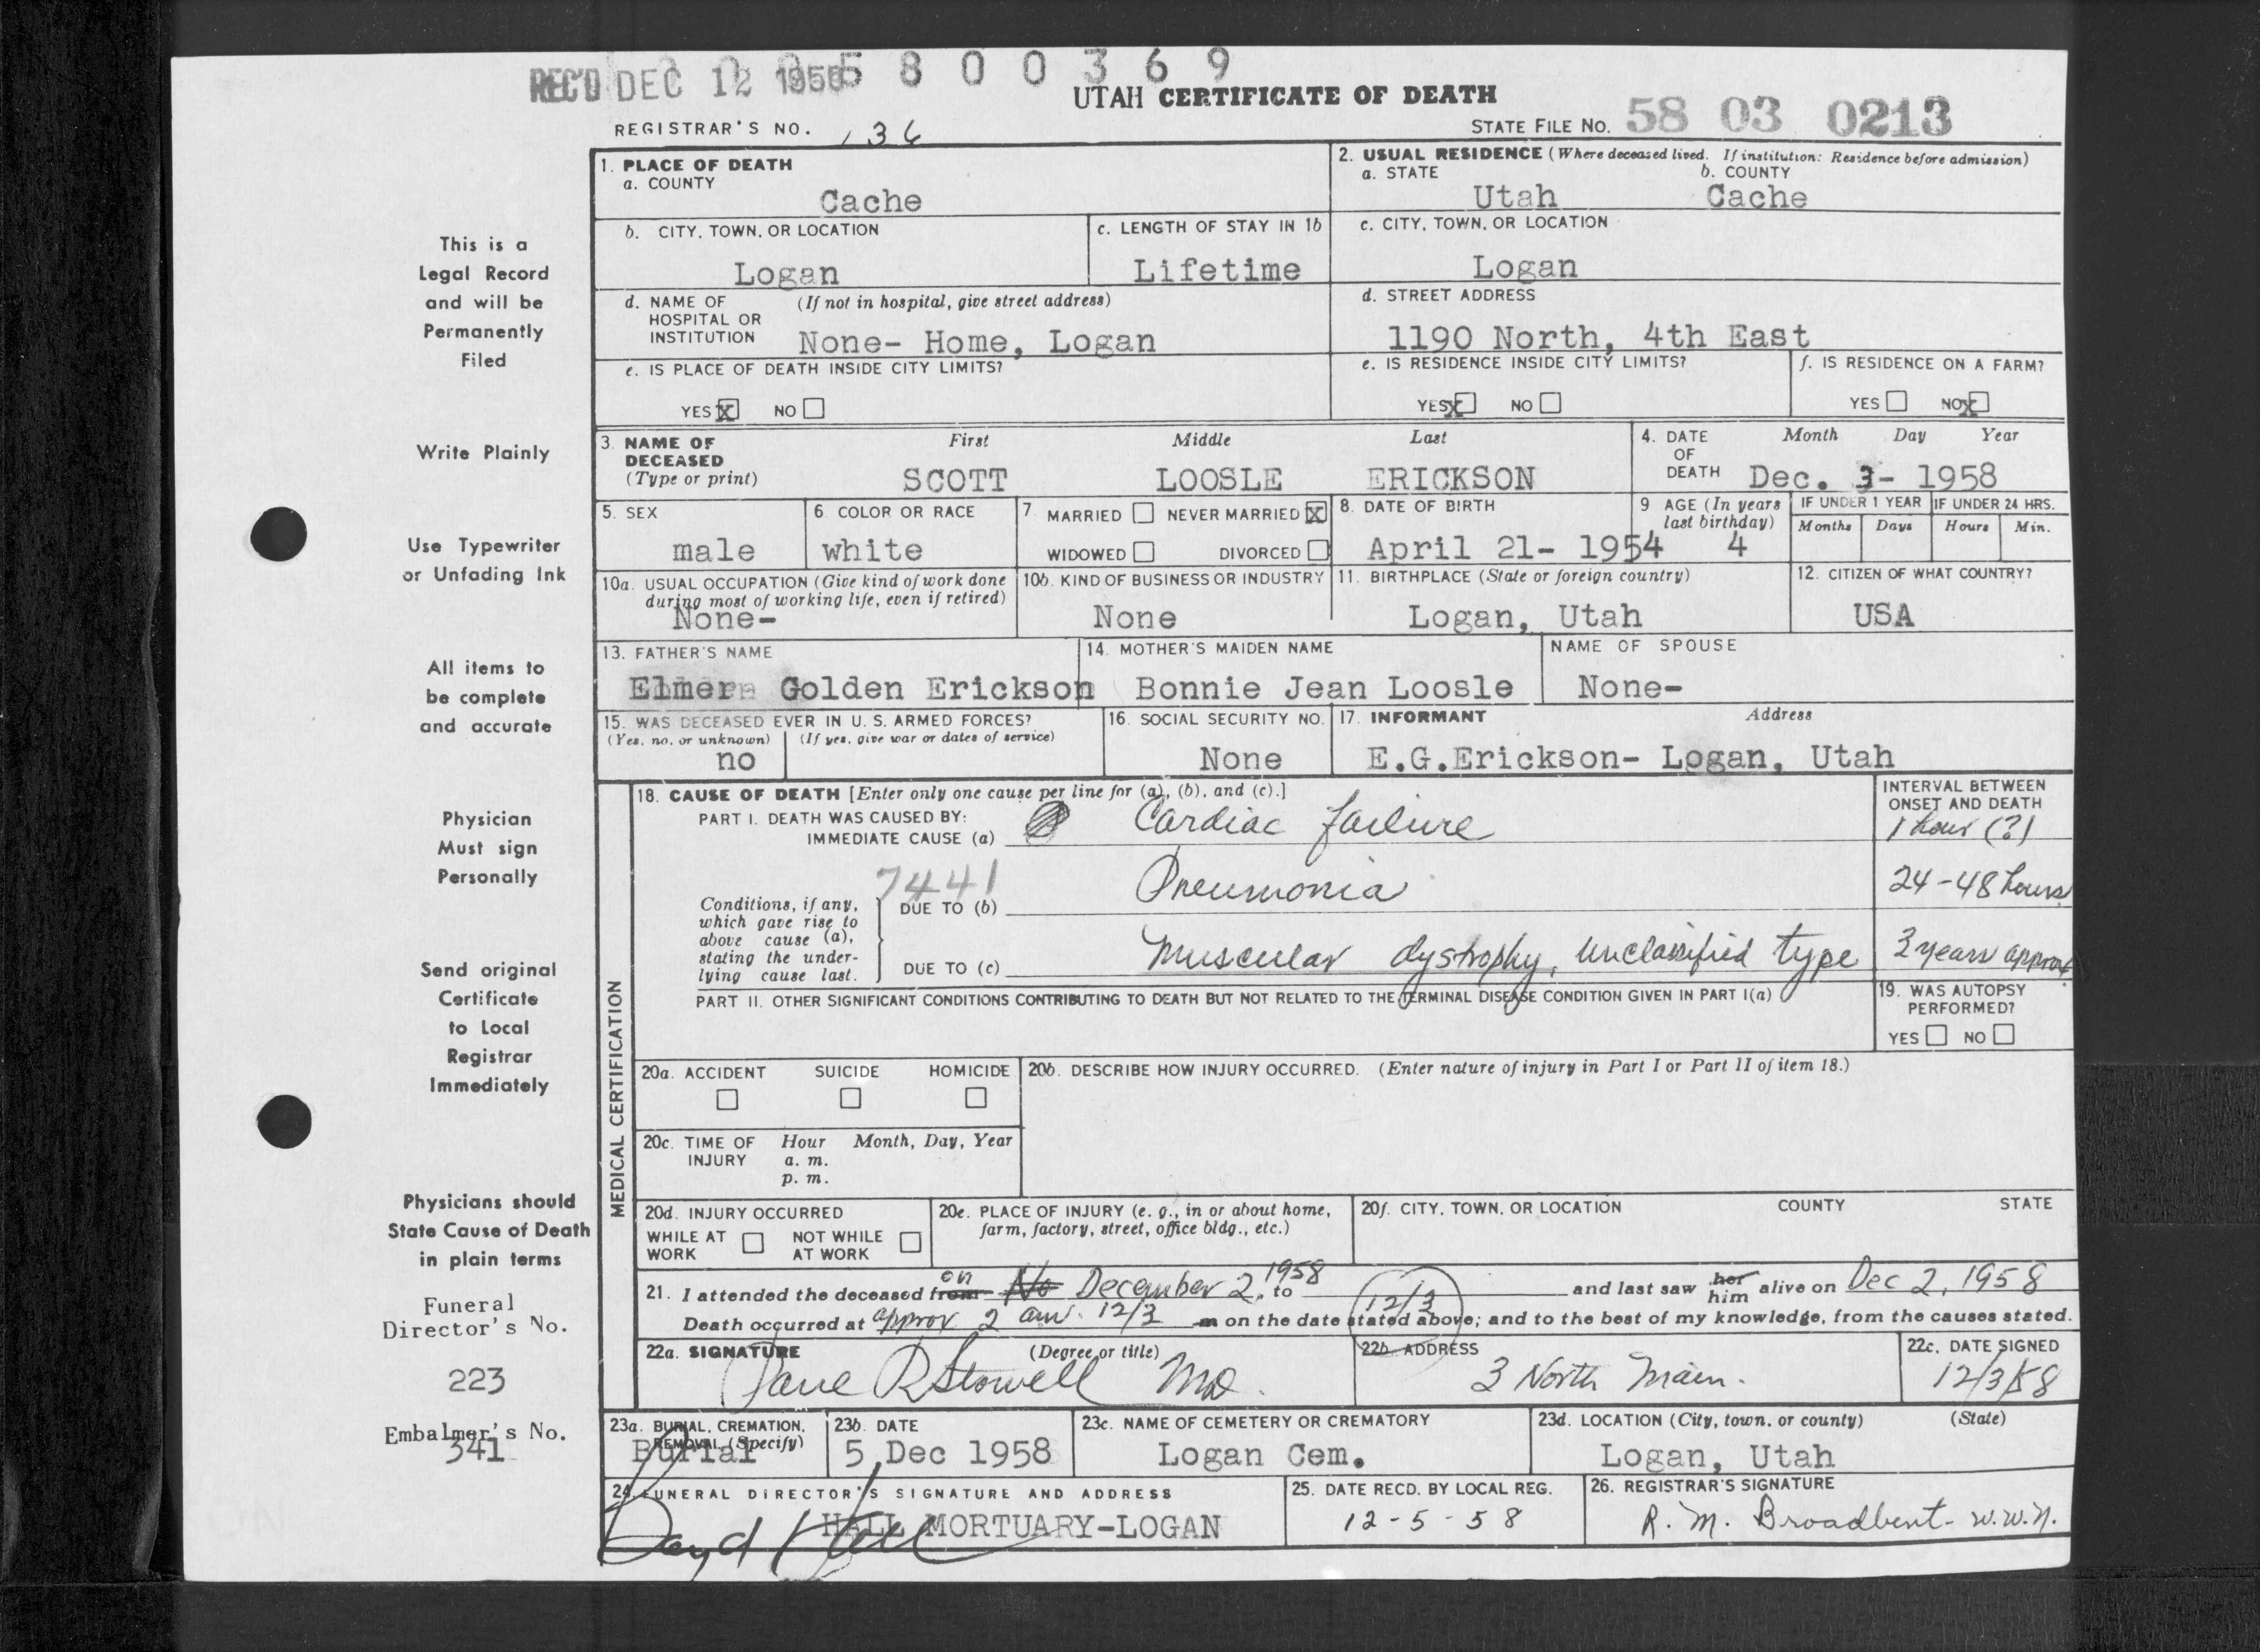 REC'D DEC 12 1958 5 8 0 0 3 6 9
UTAH CERTIFICATE OF DEATH
REGISTRAR'S NO. 136
STATE FILE NO. 58 03 0213
This is a
Legal Record
and will be
Permanently
Filed
Write Plainly
Use Typewriter
or Unfading Ink
All items to
be complete
and accurate
Physician
Must sign
Personally
Send original
Certificate
to Local
Registrar
Immediately
Physicians should
State Cause of Death
in plain terms
Funeral
Director's No.
223
Embalmer's No.
341
1. PLACE OF DEATH
a. COUNTY
Cache
2. USUAL RESIDENCE (Where deceased lived. If institution: Residence before admission)
a. STATE b. COUNTY
Utah Cache
b. CITY, TOWN, OR LOCATION
Logan
c. LENGTH OF STAY IN 1b
Lifetime
c. CITY, TOWN, OR LOCATION
Logan
d. NAME OF (If not in hospital, give street address)
HOSPITAL OR
INSTITUTION None- Home, Logan
d. STREET ADDRESS
1190 North, 4th East
e. IS PLACE OF DEATH INSIDE CITY LIMITS?
YES X NO
e. IS RESIDENCE INSIDE CITY LIMITS?
YES X NO
f. IS RESIDENCE ON A FARM?
YES NO X
3. NAME OF First Middle Last
DECEASED
(Type or print) SCOTT LOOSLE ERICKSON
4. DATE Month Day Year
OF
DEATH Dec. 3- 1958
5. SEX
male
6. COLOR OR RACE
white
7. MARRIED NEVER MARRIED X
WIDOWED DIVORCED
8. DATE OF BIRTH
April 21- 1954
9 AGE (In years
last birthday)
4
IF UNDER 1 YEAR IF UNDER 24 HRS.
Months Days Hours Min.
10a. USUAL OCCUPATION (Give kind of work done
during most of working life, even if retired)
None-
10b. KIND OF BUSINESS OR INDUSTRY
None
11. BIRTHPLACE (State or foreign country)
Logan, Utah
12. CITIZEN OF WHAT COUNTRY?
USA
13. FATHER'S NAME
Elmer Golden Erickson
14. MOTHER'S MAIDEN NAME
Bonnie Jean Loosle
NAME OF SPOUSE
None-
15. WAS DECEASED EVER IN U. S. ARMED FORCES?
(Yes, no, or unknown) (If yes, give war or dates of service)
no
16. SOCIAL SECURITY NO.
None
17. INFORMANT Address
E.G.Erickson- Logan, Utah
MEDICAL CERTIFICATION
18. CAUSE OF DEATH [Enter only one cause per line for (a), (b), and (c).]
PART I. DEATH WAS CAUSED BY:
IMMEDIATE CAUSE (a) Cardiac failure
INTERVAL BETWEEN
ONSET AND DEATH
1 hour (?)
7441
Conditions, if any,
which gave rise to
above cause (a),
stating the under-
lying cause last.
DUE TO (b) Pneumonia 24-48 hours
DUE TO (c) Muscular dystrophy, unclassified type 3 years approx
PART II. OTHER SIGNIFICANT CONDITIONS CONTRIBUTING TO DEATH BUT NOT RELATED TO THE TERMINAL DISEASE CONDITION GIVEN IN PART I(a)
19. WAS AUTOPSY
PERFORMED?
YES NO
20a. ACCIDENT SUICIDE HOMICIDE
20b. DESCRIBE HOW INJURY OCCURRED. (Enter nature of injury in Part I or Part II of item 18.)
20c. TIME OF Hour Month, Day, Year
INJURY a. m.
p. m.
20d. INJURY OCCURRED
WHILE AT NOT WHILE
WORK AT WORK
20e. PLACE OF INJURY (e. g., in or about home,
farm, factory, street, office bldg., etc.)
20f. CITY, TOWN, OR LOCATION COUNTY STATE
21. I attended the deceased from on No December 2, 1958 to and last saw her him alive on Dec 2, 1958
Death occurred at approx 2 am. 12/3 m on the date stated above; and to the best of my knowledge, from the causes stated.
12/3
22a. SIGNATURE (Degree or title)
R Stowell MD.
22b. ADDRESS
3 North Main.
22c. DATE SIGNED
12/3/58
23a. BURIAL, CREMATION,
REMOVAL (Specify)
Burial
23b. DATE
5 Dec 1958
23c. NAME OF CEMETERY OR CREMATORY
Logan Cem.
23d. LOCATION (City, town, or county) (State)
Logan, Utah
24. FUNERAL DIRECTOR'S SIGNATURE AND ADDRESS
HALL MORTUARY-LOGAN
25. DATE RECD. BY LOCAL REG.
12-5-58
26. REGISTRAR'S SIGNATURE
R. M. Broadbent- w.w.n.